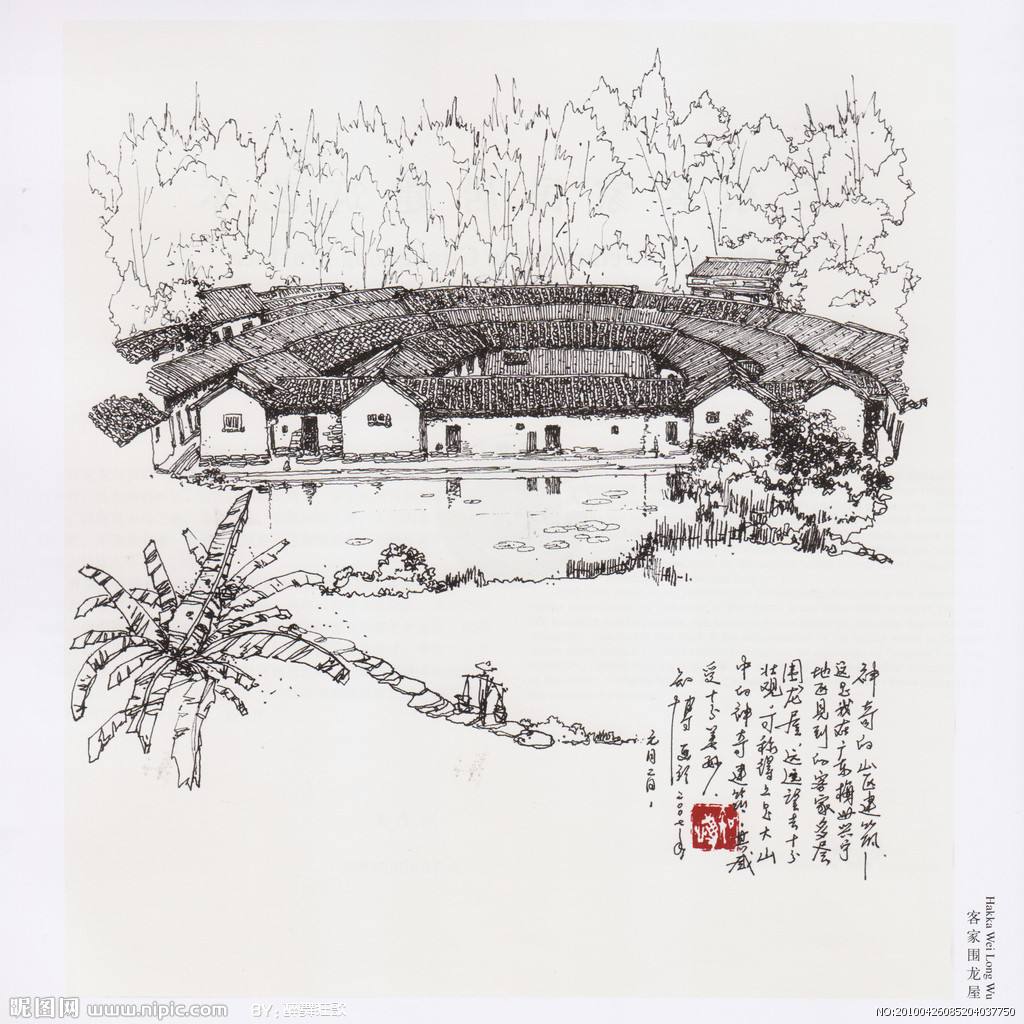 神奇的山区建筑
这是我在广东梅州兴宁
地区见到的客家多层
围龙屋，远远望去十分
壮观，可称得上是大山
中的神奇建筑，其感
受十分美妙。
二〇〇七年
元月二日
Hakka Wei Long Wu
客家围龙屋
昵图网 www.nipic.com
BY:
NO:20100426085204037750